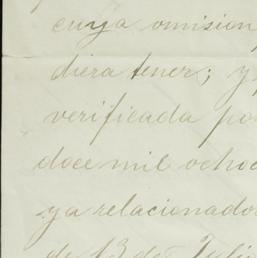 cuya omision
diera tener; y
verificada po
doce mil ocho
ya relacionado
de 13 de Juli